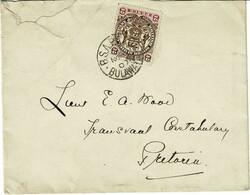 B.S.A.
BULAWAYO
Lieut E A Wood
Transvaal Constabulary
Pretoria